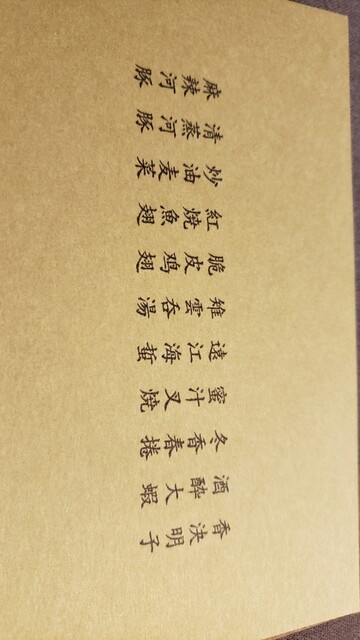 香決明子
酒醉大蝦
冬香春捲
蜜汁叉焼
遠江海蜇
雉雲呑湯
脆皮鸡翅
紅焼魚翅
炒油麦菜
清蒸河豚
麻辣河豚